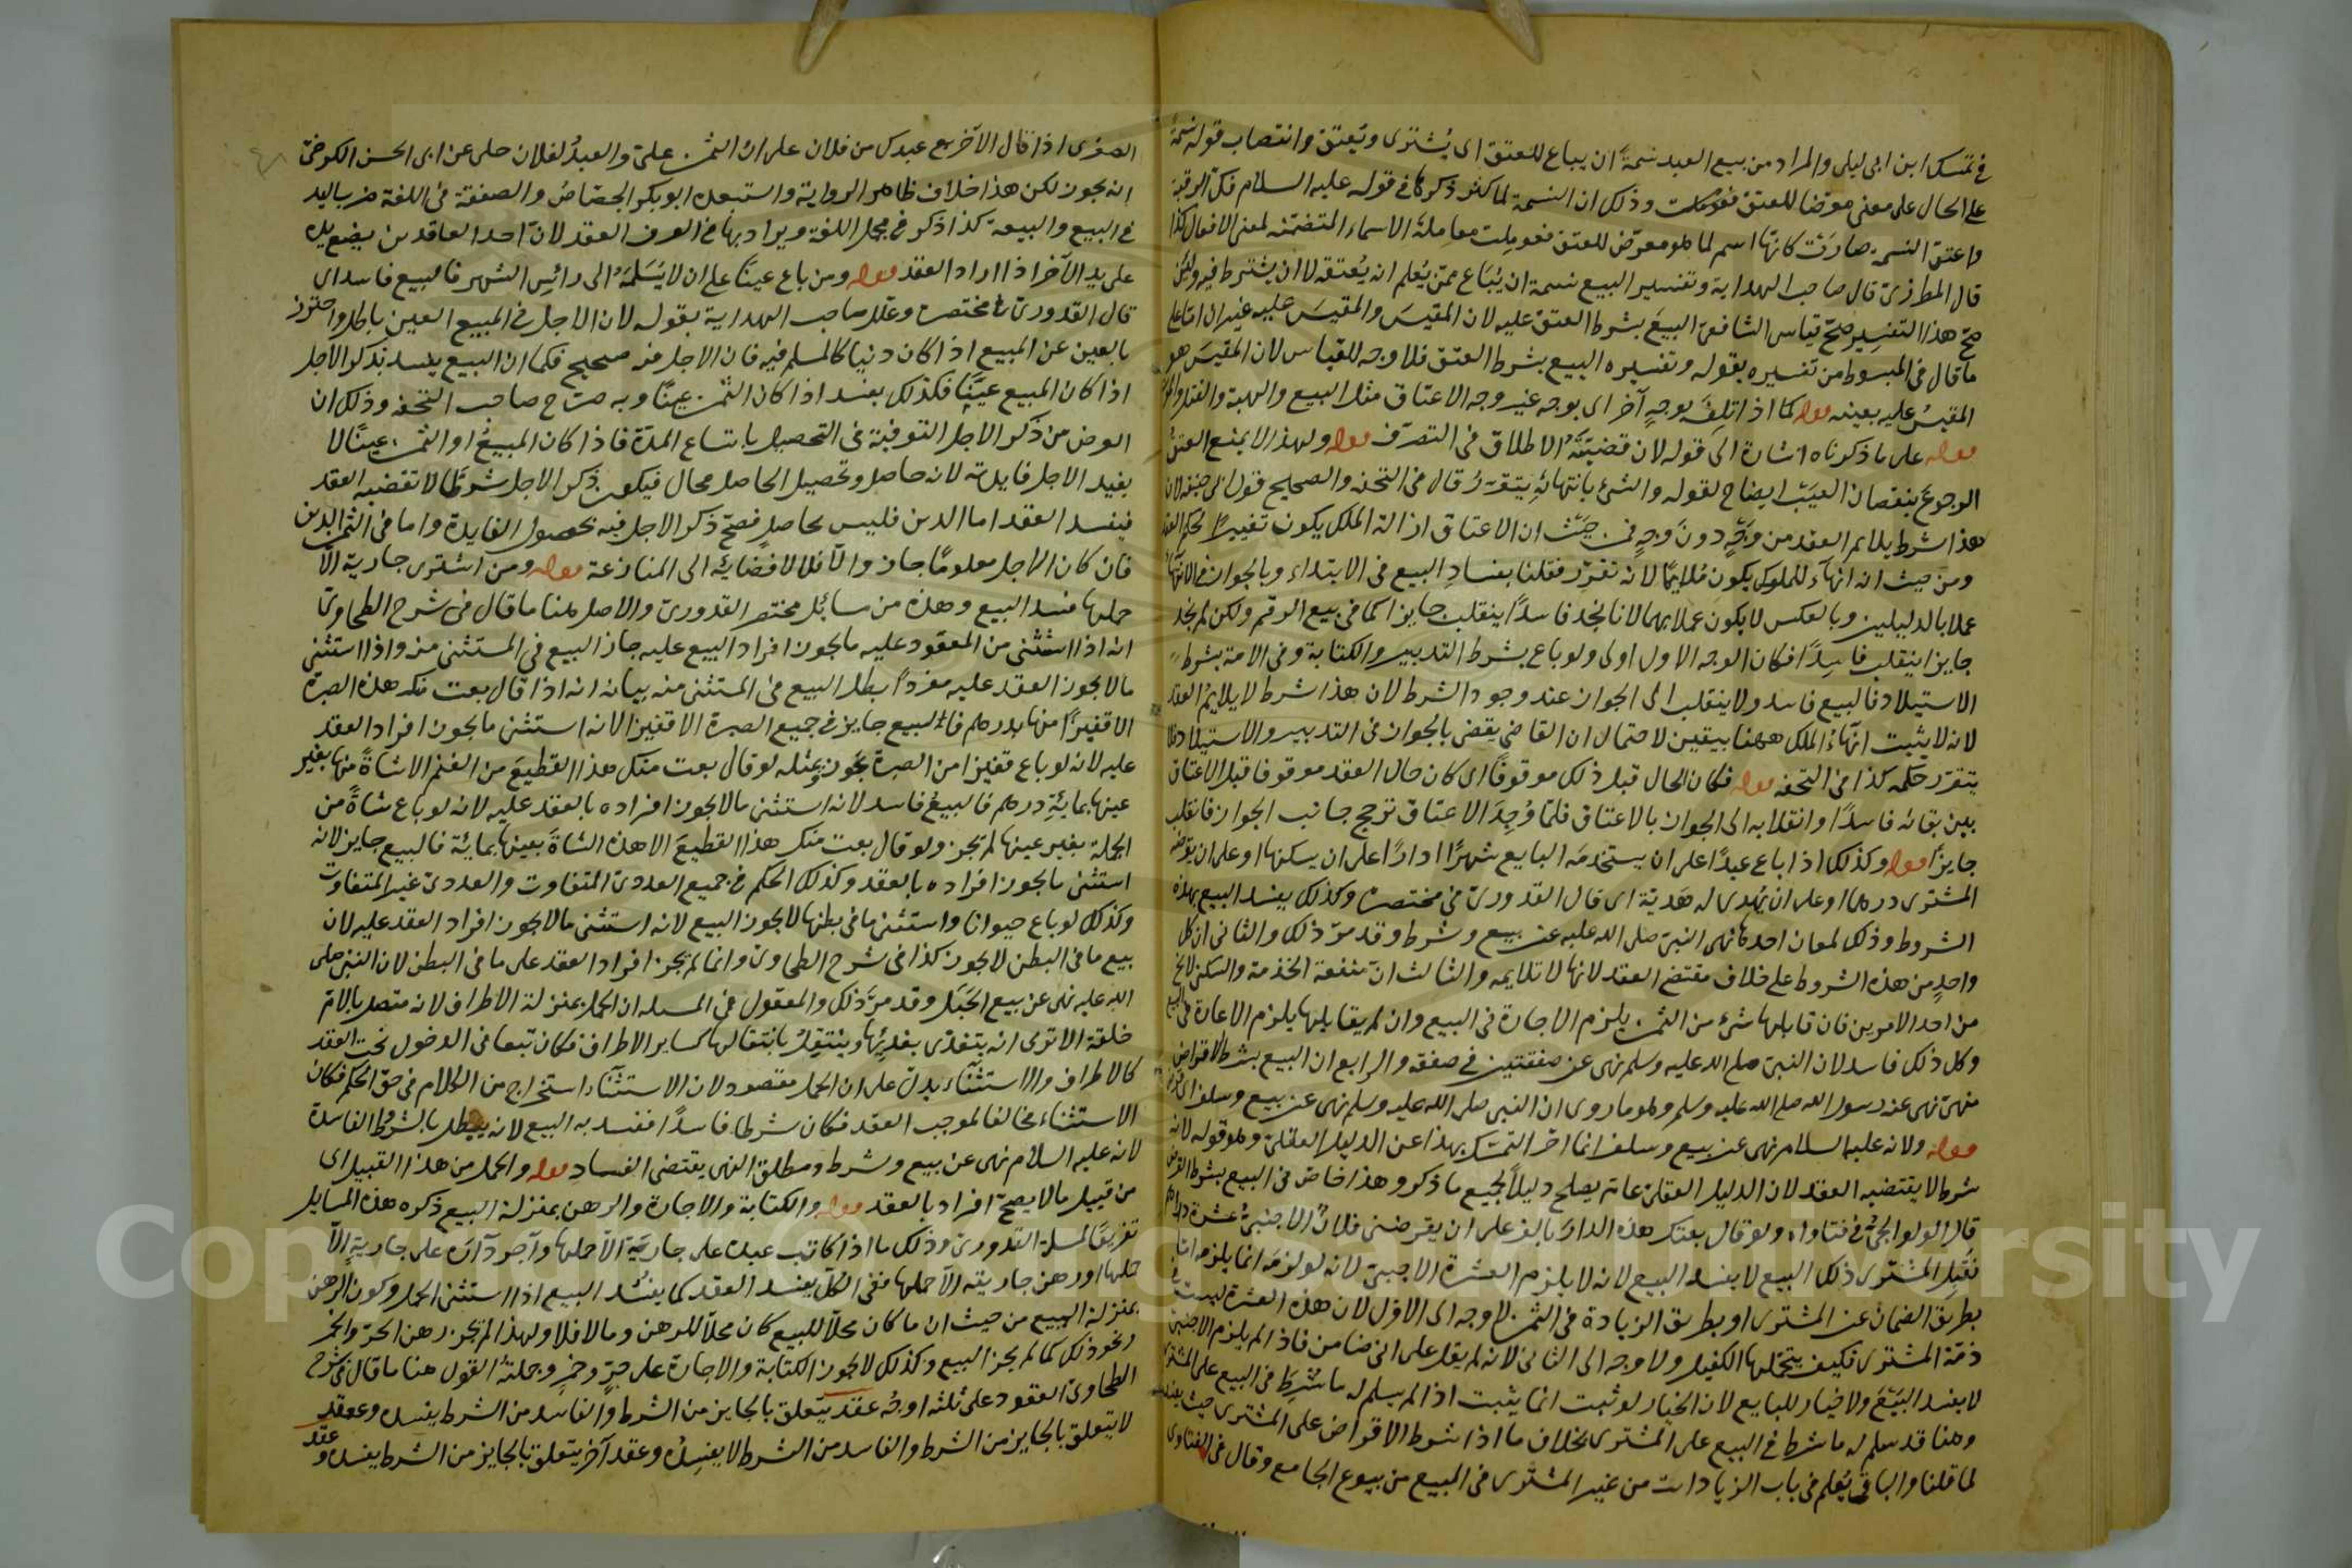 في تمسك ابن ابي ليلى والمراد من بيع العبد نسمةً ان يباع للعتق اى يُشترى ويُعتق وانتصاب قوله نسمةً
على الحال على معنى معرّضا للعتق فعوملت وذلك ان النسمة لما كثر ذكرها في قوله عليه السلام فكّ الرقبة
واعتق النسمة صارت كانها اسم لما هو معرّض للعتق فعوملت معاملة الاسماء المتضمنة لمعنى الافعال كذا
قال المطرزي قال صاحب الهداية وتفسير البيع نسمة ان يُباع ممن يُعلم انه يُعتقه لا ان يشترط فيه ولئن
صح هذا التفسير صحّ قياس الشافعى البيعَ بشرط العتق عليه لان المقيسَ والمقيسَ عليه غيران اما على
ما قال في المبسوط من تفسيره بقوله وتفسيره البيع بشرط العتق فلا وجه للقياس لان المقيسَ هو
المقيسُ عليه بعينه قوله كما اذا تلِفَ بوجهٍ آخر اى بوجه غير وجه الاعتاق مثل البيع والهبة والقتل والموت
قوله على ما ذكرناه اشارة الى قوله لان قضيّتَهُ الاطلاق في التصرّف قوله ولهذا لا يمنع العتق
الرجوعَ بنقصان العيب ايضاح لقوله والشئ بانتهائه يتقرّرُ قال في التحفه والصحيح قول ابى حنيفه لان
هذا شرط يلايم العقد من وجهٍ دون وجهٍ فمن حيث ان الاعتاق ازالة الملك يكون تغييرًا لحكم العقد
ومن حيث انه انهآء للملوك يكون مُلايمًا لانه تقرّر فقلنا بفسادِ البيع في الابتداء وبالجواز في الانتهآء
عملا بالدليلين وبالعكس لا يكون عملا بهما لانا نجد فاسدًا ينقلب جايزا كما في بيع الرقم ولكن لم نجد
جايزا ينقلب فاسدًا فكان الوجه الاول اولى ولو باع بشرط التدبير والكتابة وفي الامة بشرط
الاستيلاد فالبيع فاسد ولا ينقلب الى الجواز عند وجود الشرط لان هذا شرط لا يلايمُ العقد
لانه لا يثبت انهآءُ الملك ههنا بيقين لاحتمال ان القاضي يقضى بالجواز في التدبير والاستيلاد فلا
يتقرّر حكمه كذا في التحفه قوله فكان الحال قبل ذلك موقوفًا اى كان حال العقد موقوفا قبل الاعتاق
بين بقائه فاسدًا وانقلابه الى الجواز بالاعتاق فلمّا وُجِدَ الاعتاق ترجح جانب الجواز فانقلب
جايزًا قوله وكذلك اذا باع عبدًا على ان يستخدمَه البايع شهرًا او دارًا على ان يسكنها او على ان يقرضه
المشترى درهما او على ان يُهدى له هَديّة اى قال القدورىّ في مختصره وكذلك يفسد البيع بهذه
الشروط وذلك لمعان احدها نهى النبىّ صلى الله عليه عن بيع وشرط وقد مرّ ذلك والثانى ان كل
واحدٍ من هذه الشروط على خلاف مقتضى العقد لانها لا تلايمه والثالث ان منفعة الخدمة والسكنى لا يخ
من احد الامرين فان قابلها شئ من الثمن يلزم الاجارة في البيع وان لم يقابلها يلزم الاعارة في البيع
وكل ذلك فاسد لان النبىّ صلى الله عليه وسلم نهى عن صفقتين في صفقه والرابع ان البيع بشرط الاقراض
منهىّ نهى عنه رسول الله صلى الله عليه وسلم وهو ما روى ان النبى صلى الله عليه وسلم نهى عن بيع وسلف اى قرض
قوله ولانه عليه السلام نهى عن بيع وسلف انما اخر التمسّك بهذا عن الدليل العقلىّ وهو قوله لانه
شرط لا يقتضيه العقد لان الدليل العقلىّ عام يصلح دليلًا لجميع ما ذكر وهذا خاصّ في البيع بشرط القرض
قال الولوالجىّ في فتاواه ولو قال بعتك هذه الدارَ بالف على ان يقرضنى فلانٌ الاجنبىُّ عشرة دراهم
فقَبِل المشترى ذلك البيع لا يفسد البيع لانه لا يلزم العشرة الاجنبىّ لانه لو لزمَه انما يلزم اما
بطريق الضمان عن المشترى او بطريق الزيادة في الثمن لا وجه الى الاول لان هذه العشرة ليست في
ذمّة المشترى فكيف يتحمّلها الكفيل ولا وجه الى الثانى لانه لم يقل على انى ضامن فاذا لم يلزم الاجنبىّ
لا يفسد البيعَ ولا خيار للبايع لان الخيار لو ثبت انما يثبت اذا لم يسلم له ما شُرِطَ في البيع على المشترى
وهنا قد سلم له ما شرط في البيع على المشترى بخلاف ما اذا شرط الاقراض على المشترى حيث يفسد
لما قلنا والباقي يُعلم في باب الزيادات من غير المشترى في المبيع من بيوع الجامع وقال في الفتاوى
الصغرى اذا قال لآخر بع عبدك من فلان على ان الثمن علىّ والعبدُ لفلان حكى عن ابى الحسن الكرخىّ
انه يجوز لكن هذا خلاف ظاهر الرواية واستبعده ابو بكر الجصّاصُ والصفقة في اللغة ضرب باليد
في البيع والبيعة كذا ذكر في مجمل اللغة ويراد بها في العرف العقد لان احد العاقدين يضع يده
على يد الآخر اذا اراد العقد قوله ومن باع عينًا على ان لا يُسَلمَهُ الى رأس الشهر فالبيع فاسد اى
قال القدورىّ في مختصره وعلّله صاحب الهداية بقوله لان الاجل في المبيع العين باطل واحترز
بالعين عن المبيع اذا كان دينًا كالمسلم فيه فان الاجل فيه صحيح فكما ان البيع يفسد بذكر الاجل
اذا كان المبيع عينًا فكذلك يفسد اذا كان الثمن عينًا وبه صرّح صاحب التحفه وذلك ان
الغرض من ذكر الاجل التوفية في التحصيل باتساع المدّة فاذا كان المبيعُ او الثمن عينًا لا
يفيد الاجل فايدته لانه حاصل وتحصيل الحاصل محال فيكون ذكر الاجل شرطًا لا تقتضيه العقد
فيفسد العقد اما الدين فليس بحاصلٍ فصحّ ذكر الاجل فيه لحصول الفايدة واما في الثمن الدين
فان كان الاجل معلومًا جاز والا فلا لافضائه الى المنازعة قوله ومن اشترى جارية الّا
حملها فسد البيع وهذه من مسائل مختصر القدورىّ والاصل هنا ما قال في شرح الطحاوىّ
انه اذا استثنى من المعقود عليه ما يجوز افراد البيع عليه جاز البيع في المستثنى منه واذا استثنى
ما لا يجوز العقد عليه مفردًا بطل البيع في المستثنى منه بيانه انه اذا قال بعت منك هذه الصبرة
الا قفيزًا منها بدرهم فان البيع جايز في جميع الصبرة الا قفيزا لانه استثنى ما يجوز افراد العقد
عليه لانه لو باع قفيزا من الصبرة يجوز ومثله لو قال بعت منك هذا القطيعَ من الغنم الا شاةً منها بغير
عينها بمائةِ درهم فالبيعُ فاسد لانه استثنى ما لا يجوز افراده بالعقد عليه لانه لو باع شاةً من
الجملة بغير عينها لم يجز ولو قال بعت منك هذا القطيعَ الا هذه الشاةَ بعينها بمائة فالبيع جايز لانه
استثنى ما يجوز افراده بالعقد وكذلك الحكم في جميع العددىّ المتفاوت والعددىّ غير المتفاوت
وكذلك لو باع حيوانا واستثنى ما في بطنها لا يجوز البيع لانه استثنى ما لا يجوز افراد العقد عليه لان
بيع ما في البطن لا يجوز كذا في شرح الطحاوىّ وانما لم يجز افراد العقد على ما في البطن لان النبىّ صلى
الله عليه نهى عن بيع الحَبَل وقد مرّ ذلك والمعقول في المسله ان الحمل بمنزلة الاطراف لانه متصل بالام
خلقة الا ترى انه يتغذّى بغذائها وينتقل بانتقالها كساير الاطراف فكان تبعا في الدخول تحت العقد
كالاطراف والاستثنآء يدلّ على ان الحمل مقصود لان الاستثنآء استخراج من الكلام في حق الحكم فكان
الاستثناء مخالفا لموجب العقد فكان شرطا فاسدًا ففسد به البيع لانه يبطل بالشروط الفاسدة
لانه عليه السلام نهى عن بيع وشرط ومطلق النهى يقتضى الفساد قوله والحمل من هذا القبيل اى
من قبيل ما لا يصحّ افراد بالعقد قوله والكتابة والاجارة والرهن بمنزلة البيع ذكره هذه المسايل
تفريعًا لمسلة القدورىّ وذلك ما اذا كاتب عبده على جارية الا حملها وآجر داره على جاريةٍ الّا
حملها او رهن جاريته الا حملها ففي الكلّ يفسد العقد كما يفسُد البيع اذا استثنى الحمل وكون الرهن
بمنزلة البيع من حيث ان ما كان محلًّا للبيع كان محلًّا للرهن وما لا فلا ولهذا لم يجز رهن الحرّ والخمر
ونحو ذلك كما لم يجز البيع وكذلك لا يجوز الكتابة والاجارة على حرّ وخمرٍ وجملة القول هنا ما قال في شرح
الطحاوىّ العقود على ثلثه اوجُه عقد يتعلق بالجايز من الشرط والفاسد من الشرط يفسده وعقد
لا يتعلق بالجايز من الشرط والفاسد من الشرط لا يفسِدُه وعقد آخر يتعلق بالجايز من الشرط يفسده وعقد